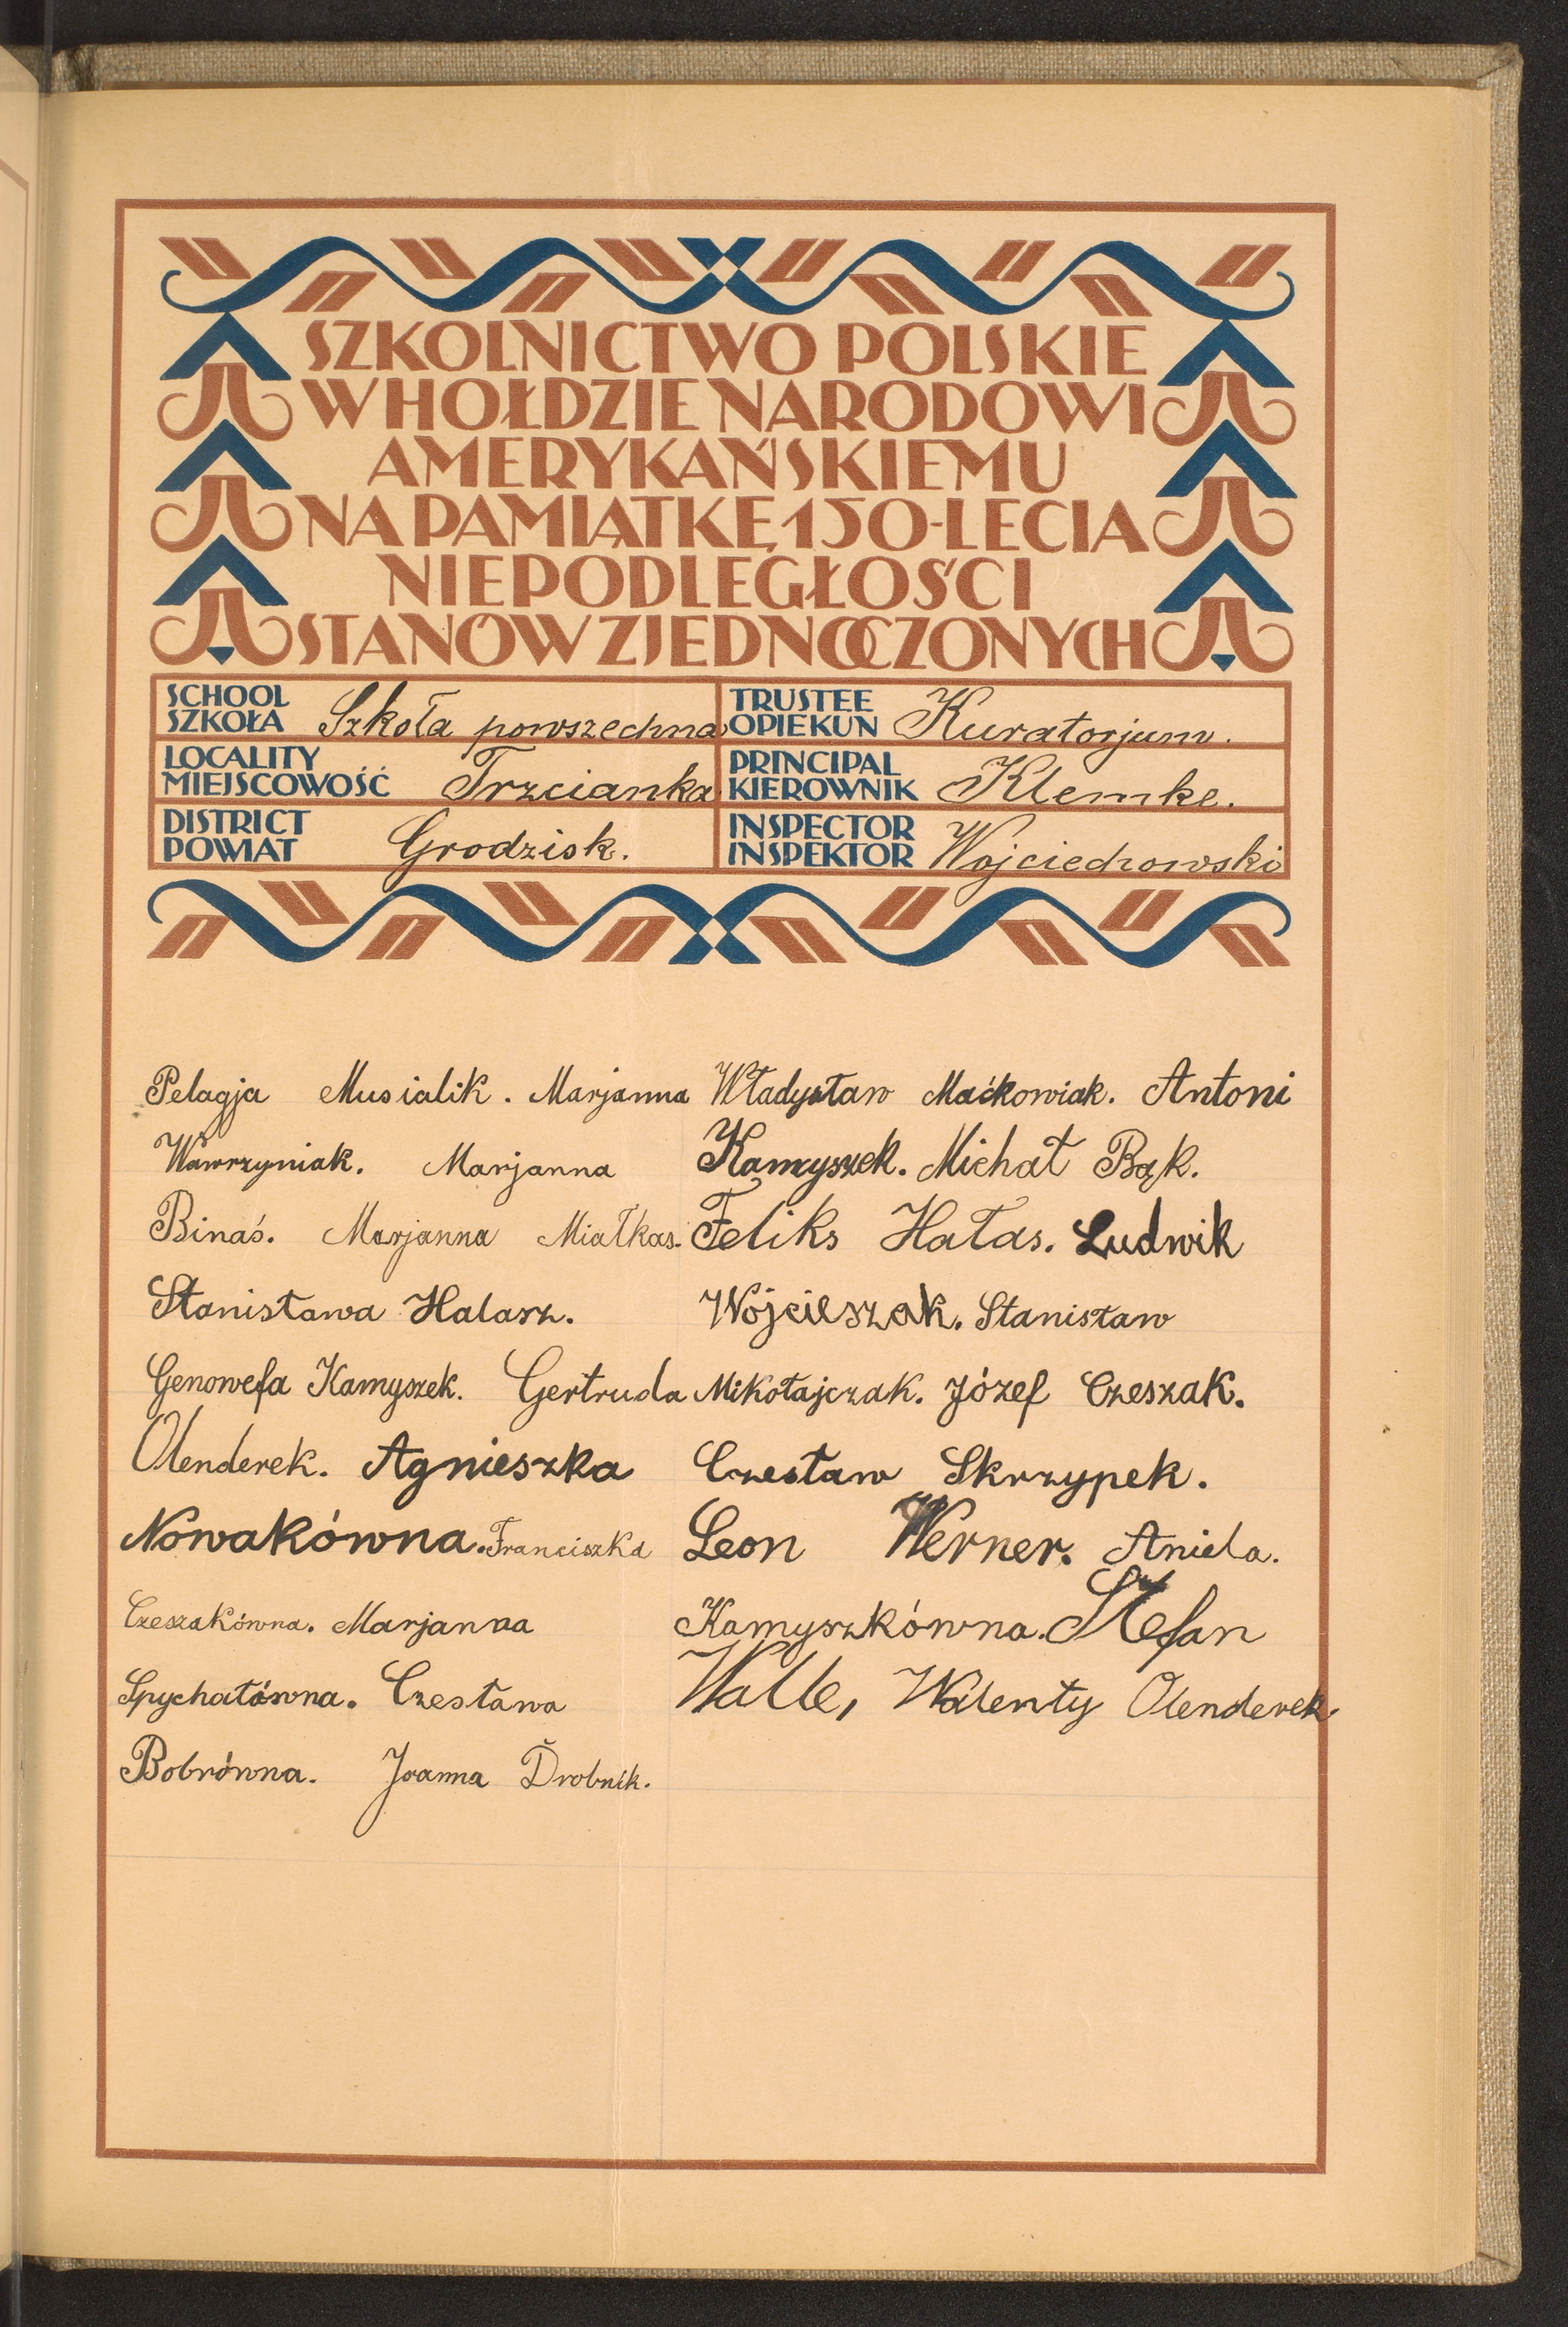 SZKOLNICTWO POLSKIE
W HOŁDZIE NARODOWI
AMERYKAŃSKIEMU
NA PAMIĄTKĘ 150-LECIA
NIEPODLEGŁOŚCI
STANÓW ZJEDNOCZONYCH
SCHOOL
SZKOŁA Szkoła powszechna
LOCALITY
MIEJSCOWOŚĆ Trzcianka
DISTRICT
POWIAT Grodzisk.
TRUSTEE
OPIEKUN Kuratorjum.
PRINCIPAL
KIEROWNIK Klemke.
INSPECTOR
INSPEKTOR Wojciechowski
Pelagja Musialik. Marjanna
Wawrzyniak. Marjanna
Binaś. Marjanna Miałkas.
Stanisława Halasz.
Genowefa Kamyszek. Gertruda
Olenderek. Agnieszka
Nowakówna. Franciszka
Czeszakówna. Marjanna
Spychałówna. Czesława
Bobrówna. Joanna Drobnik.
Władysław Maćkowiak. Antoni
Kamyszek. Michał Bąk.
Feliks Hałas. Ludwik
Wojcieszak. Stanisław
Mikołajczak. Józef Czeszak.
Czesław Skrzypek.
Leon Werner. Aniela.
Kamyszkówna. Stefan
Walle, Walenty Olenderek.